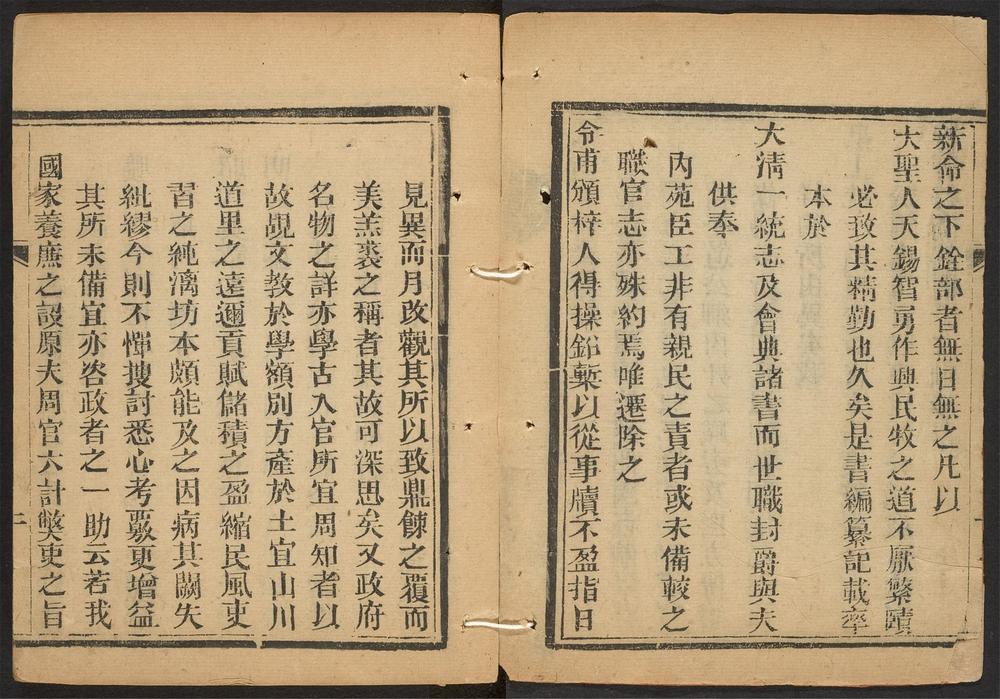 新命之下銓部者無日無之凡以
大聖人天錫智勇作興民牧之道不厭繁賾
必致其精勤也久矣是書編纂記載率
本於
大清一統志及會典諸書而世職封爵與夫
內苑臣工非有親民之責者或未備較之
供奉
職官志亦殊約焉唯遷除之
令甫頒梓人得操鉛槧以從事牘不盈指日
見異而月改觀其所以致鼎餗之覆而
美羔裘之稱者其故可深思矣又政府
名物之詳亦學古入官所宜周知者以
故覘文教於學額別方產於土宜山川
道里之遠邇貢賦儲積之盈縮民風吏
習之純漓坊本頗能及之因病其闕失
紕繆今則不憚搜討悉心考覈更增益
其所未備宜亦咨政者之一助云若我
國家養廉之設原夫周官六計弊吏之旨
二